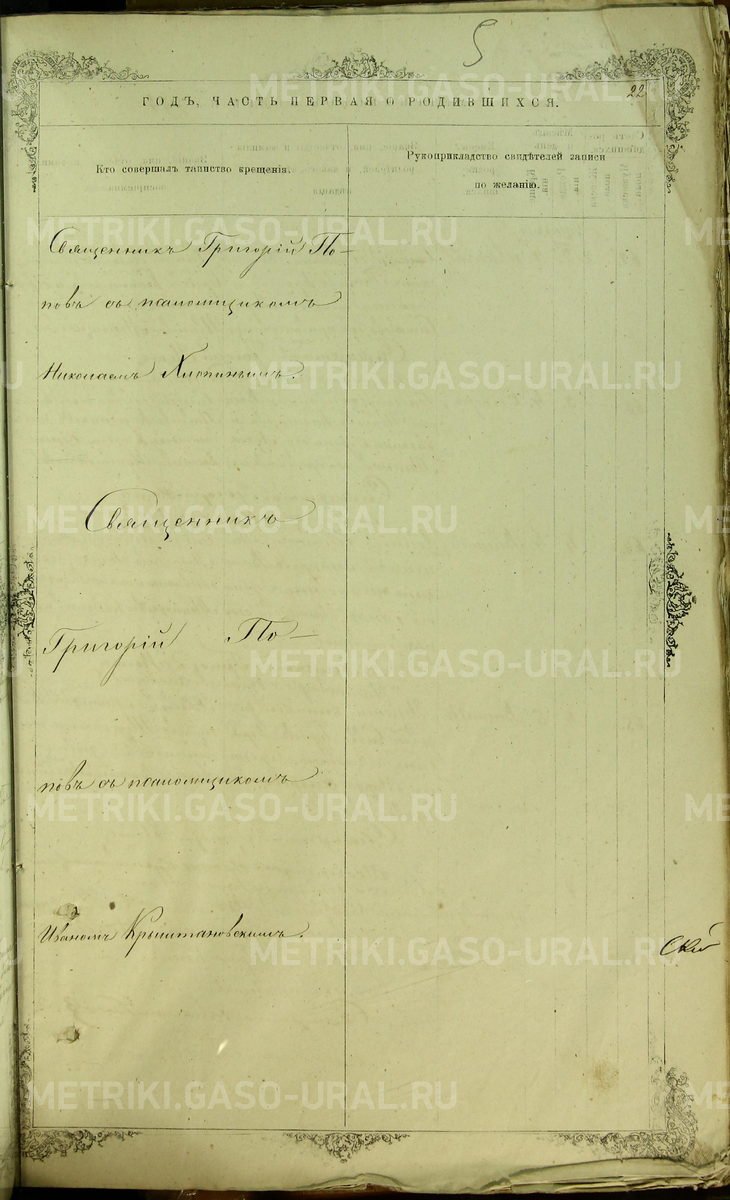 5
22
ГОДЪ, ЧАСТЬ ПЕРВАЯ О РОДИВШИХСЯ.
Кто совершалъ таинство крещенія.
Рукоприкладство свидѣтелей записи
по желанію.
Священникъ Григорій По-
повъ съ псаломщикомъ
Николаемъ
Священникъ
Григорій По-
повъ съ псаломщикомъ
Иваномъ Крыштановскимъ.
METRIKI.GASO-URAL.RU